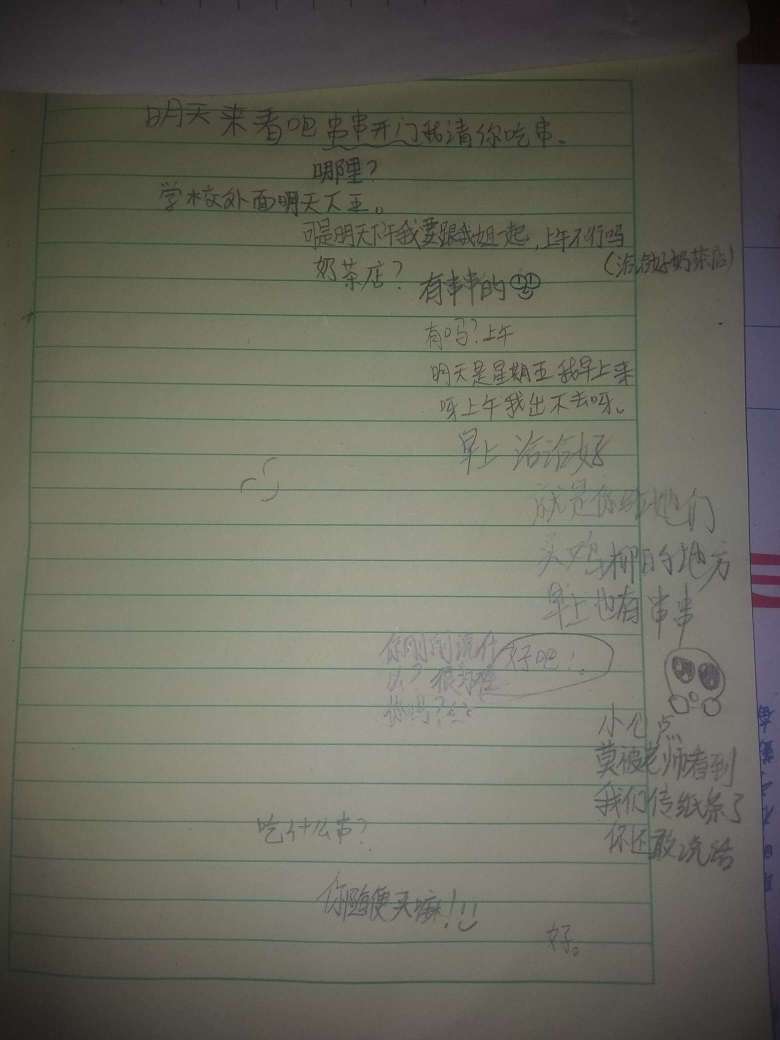 明天来看吧串串开门我请你吃串。
哪里?
学校外面明天下五。
可是明天下午我要跟我姐一起,上午不行吗
(洽洽好奶茶店)
奶茶店?
有串串的
有吗?上午
明天是星期五我早上来
呀上午我出不去呀。
早上洽洽好
就是你给她们
买鸡柳的地方
早上也有串串
你刚刚说什
么?很为难
你吗?
好吧!
小心点
莫被老师看到
我们传纸条了
你还敢说话
吃什么串?
你随便买嘛!!!
好。